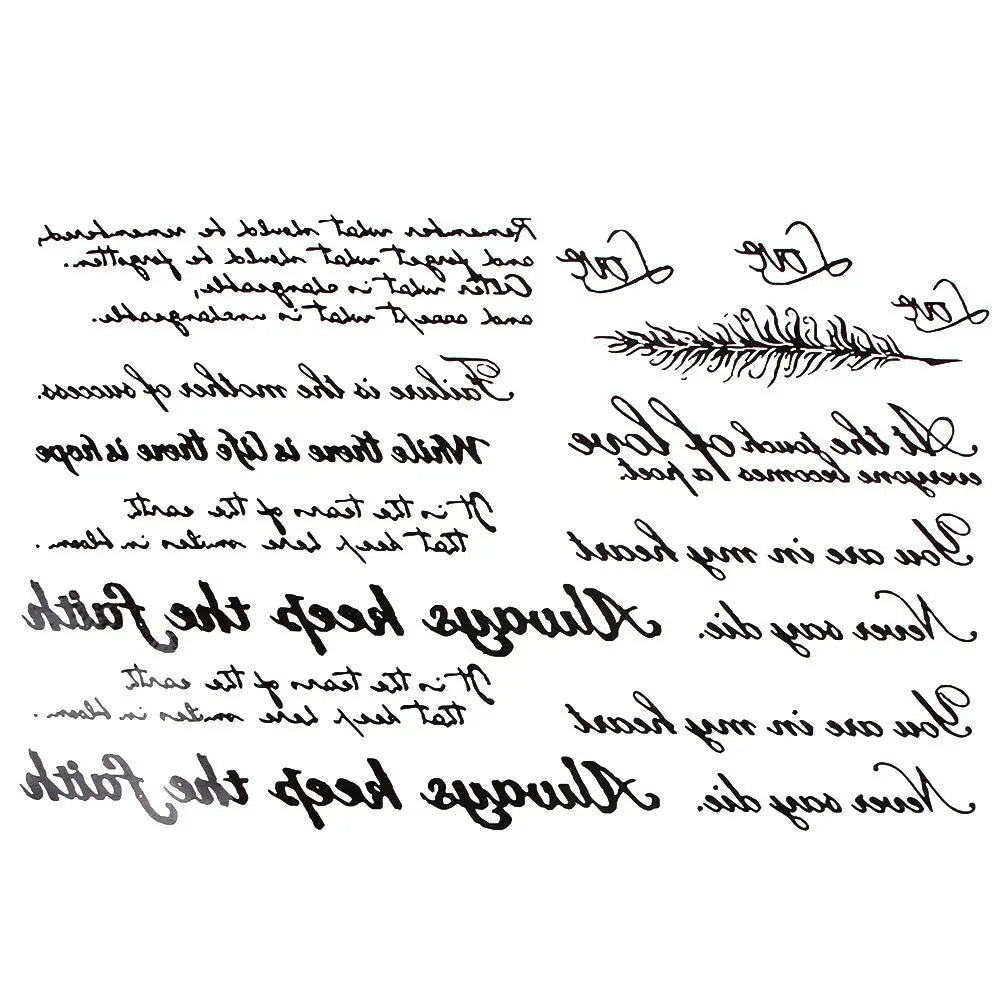 Love
Love
Love
At the touch of love
everyone becomes a poet.
You are in my heart
Never say die.
You are in my heart
Never say die.
Remember what should be remembered,
and forget what should be forgotten.
Alter what is changeable,
and accept what is unchangeable.
Failure is the mother of success.
While there is life there is hope
It is the tears of the earth
that keep here smiles in bloom.
Always keep the faith
It is the tears of the earth
that keep here smiles in bloom.
Always keep the faith